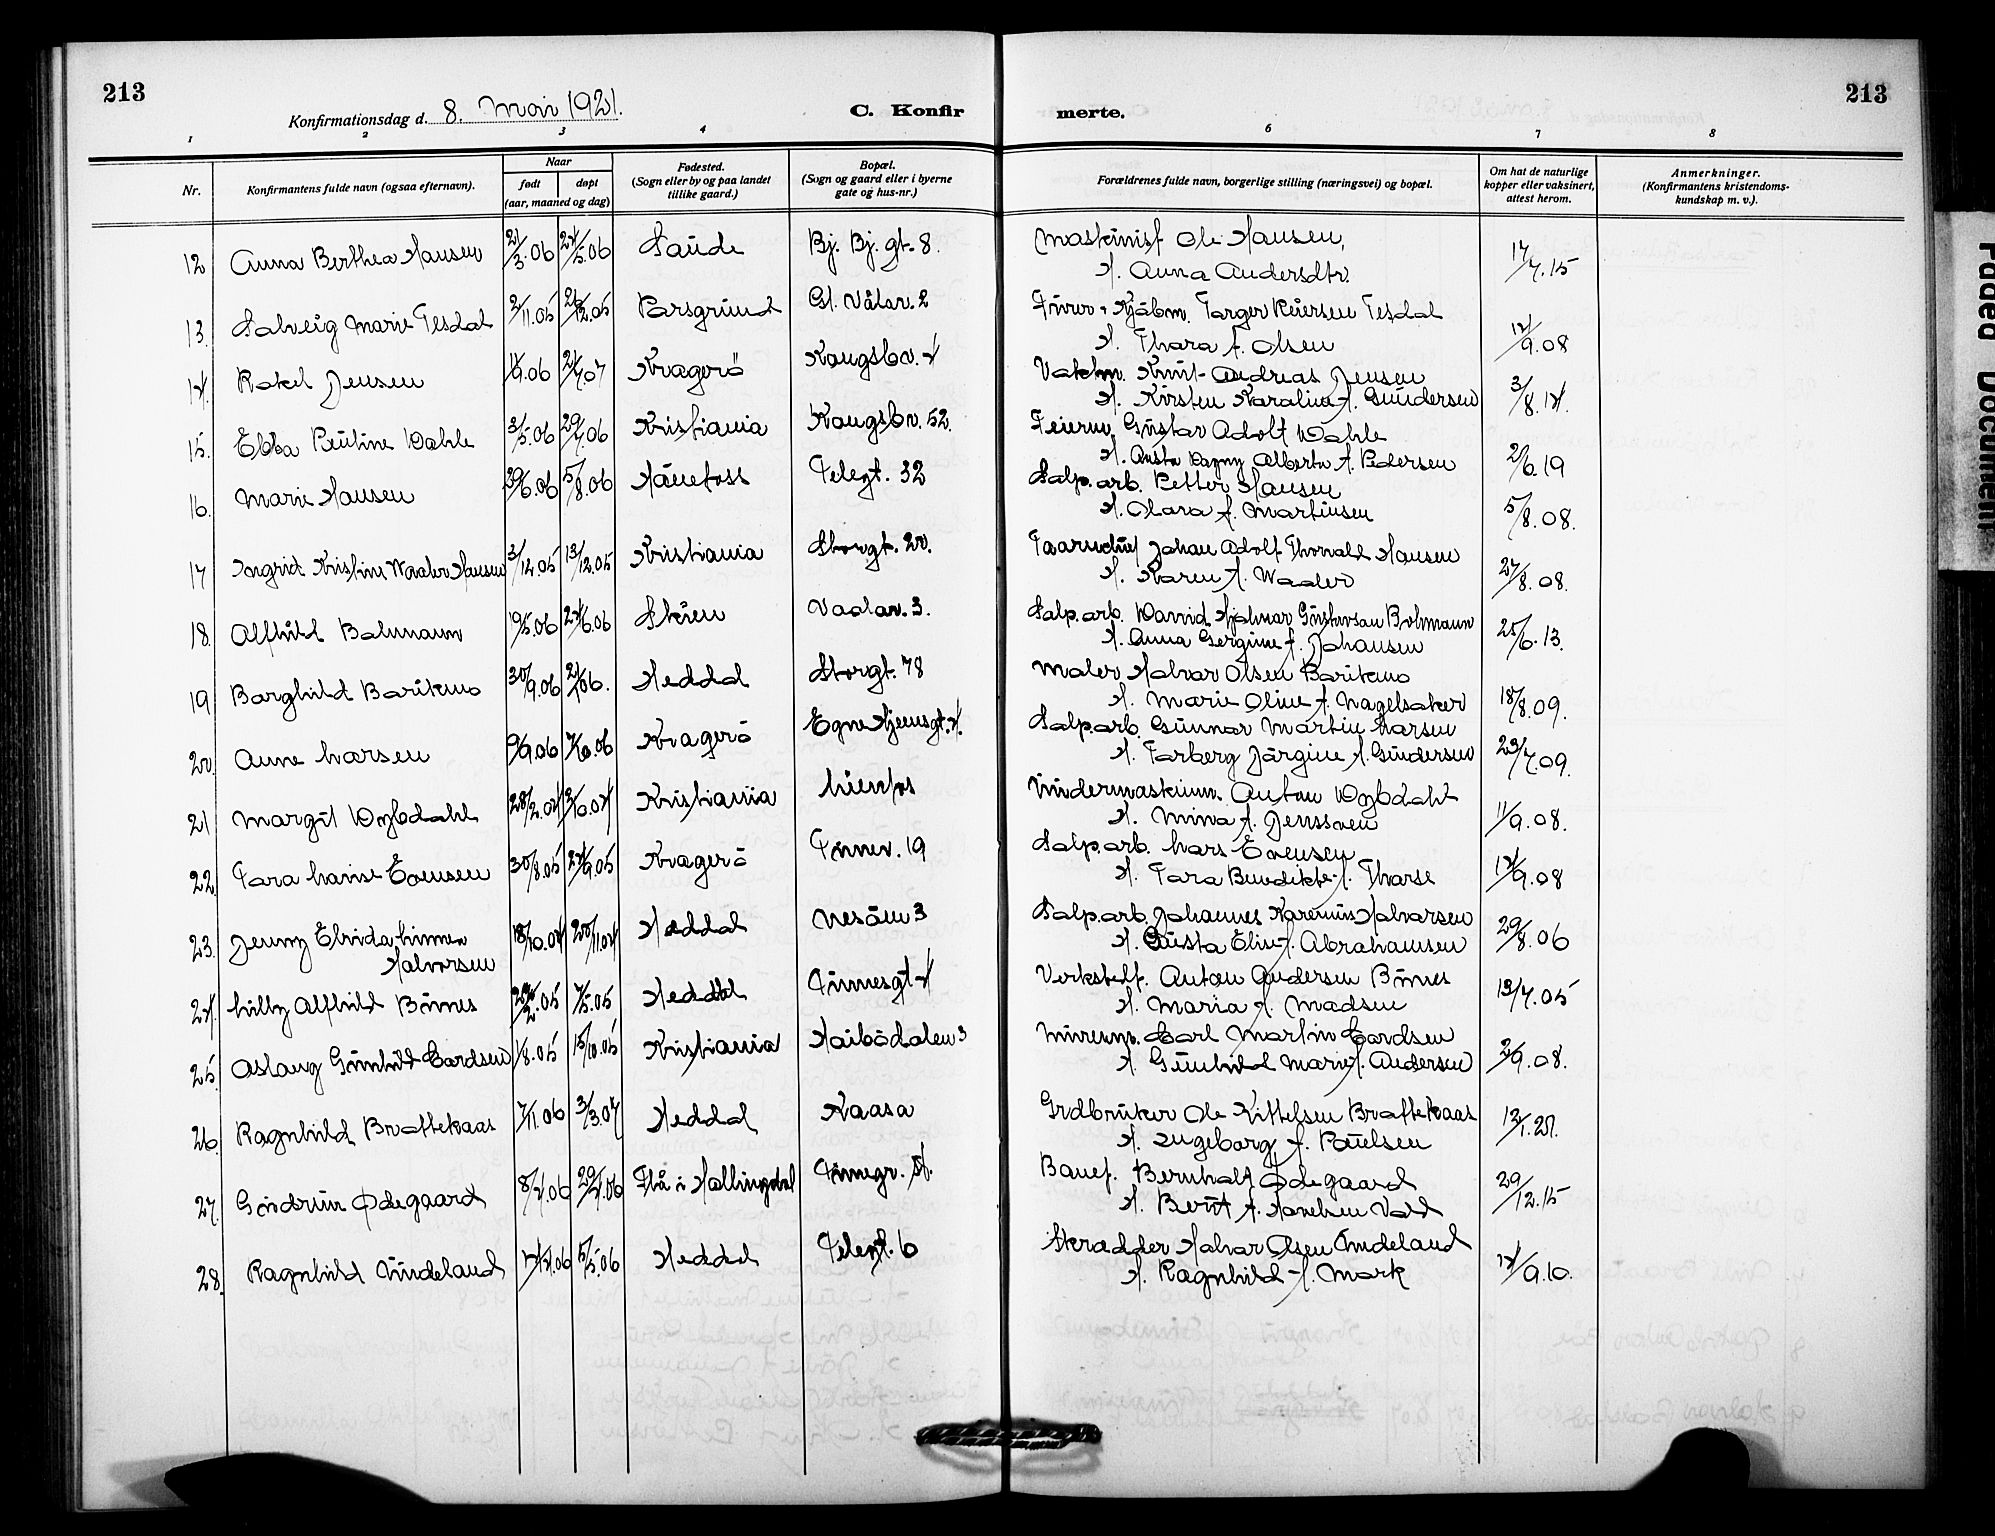 213
Konfirmationsdag d. 8. Mai 1921.
C. Konfir
merte.
213
1 2 3 4 6 7 8
Nr.
Konfirmantens fulde navn (ogsaa efternavn).
Naar
født døpt
(aar, maaned og dag)
Fødested.
(Sogn eller by og paa landet
tillike gaard.)
Bopæl.
(Sogn og gaard eller i byerne
gate og hus-nr.)
Forældrenes fulde navn, borgerlige stilling (næringsvei) og bopæl.
Om hat de naturlige
kopper eller vaksinert,
attest herom.
Anmerkninger.
(Konfirmantens kristendoms-
kundskap m. v.).
12 Anna Berthea Hansen 21/3.06 24/5.06 Saude Bj. Bj. gt. 8. Maskinist Ole Hansen,
H. Anna Andersdtr. 17/7.15
13. Solveig Marie Tesdal 3/11.05 Porsgrund Gl. Vålav. 2 Torger Reiersen Tesdal
H. Thora f. Olsen 12/9.08
14. Rakel Jensen 24/7.07 Kragerö Kongsbv. 4 Vaktm. Knut Andreas Jensen
H. Kirsten Karoline f. Gundersen 3/8.14.
15. Ebba Pauline Dahle 3/5.06 29/7.06 Kristiania Kongsbv. 52. Feierm. Gustav Adolf Dahle
H. Dagny Alberta f. Pedersen 2/6.19
16. Marie Hansen 5/8.06 Hönefoss Telegt. 32 Salp. arb. Petter Hansen
H. Olava f. Martinsen 5/8.08.
17 Ingrid Kristine Waaler Hansen 3/12.05 13/12.05 Kristiania Storgt. 20. Johan Adolf Thorvald Hansen
H. Karen f. Waaler 27/8.08.
18. Alfhild Bohmann 19/5.06 24/6.06 Skien Vaalav. 3. Salp. arb. David Hjalmar Gustavsen Bohmann
H. Anna Gergine f. Johansen 25/6.13.
19 Borghild Barikmo 30/9.06 Heddal Storgt. 78 Maler Halvor Olsen Barikmo
H. Marie Oline f. Nagelsaker 18/8.09.
20. Anne Larsen 9/9.06 7/10.06 Kragerö Egne Hjemsgt. 4. Salp.arb. Gunnar Martin Larsen
H. Torborg Jörgine f. Gundersen 23/7.09.
21 Margit Dybdahl 28/2.04 2/10.04 Kristiania Lienfos Undermaskinm. Anton Dybdahl
H. Mina f. Jenssven 11/9.08.
22. Tora Evensen 30/8.05 24/9.05 Kragerö Tinnev. 19 Salp.arb. Lars Evensen
H. Tora Bendikte f. Thorse 14/9.08
23. Jenny Elvida Linnea
Halvorsen 18/10.04 20/11.04 Heddal Nesöen 3 Salp.arb. Johannes Karenius Halvorsen
H. Gusta Elin f. Abrahamsen 29/8.06
24. Lilly Alfhild Bönes 7/5.05 Heddal Tinnesgt 4 Verkstedf. Anton Andersen Bönes
H. Maria f. Madsen 13/7.05
25. Aslaug Gunhild Eardsen 1/8.05 15/10.05 Kristiania Haibödalen 3 Murerm. Carl Martin Eardsen
H. Gunhild Marie f. Andersen 2/9.08.
26. Ragnhild Brattekaas 7/11.06 3/3.07 Heddal Kaasa Grdbruker Ole Kittelsen Brattekaas
H. Ingeborg f. Poulsen 12/1.21.
27. Gudrun Ødegaard 8/4.06 29/4.06 Flå i Hallingdal Tinnegr. St. Banef. Bernhalt Ødegaard
H. Berit f. Vold 29/12.15
28. Ragnhild Undeland 5/5.06 Heddal Telegt. 6 Skrædder Halvor Olsen Undeland
H. Ragnhild f. Mork 14/9.10.
Faded Document